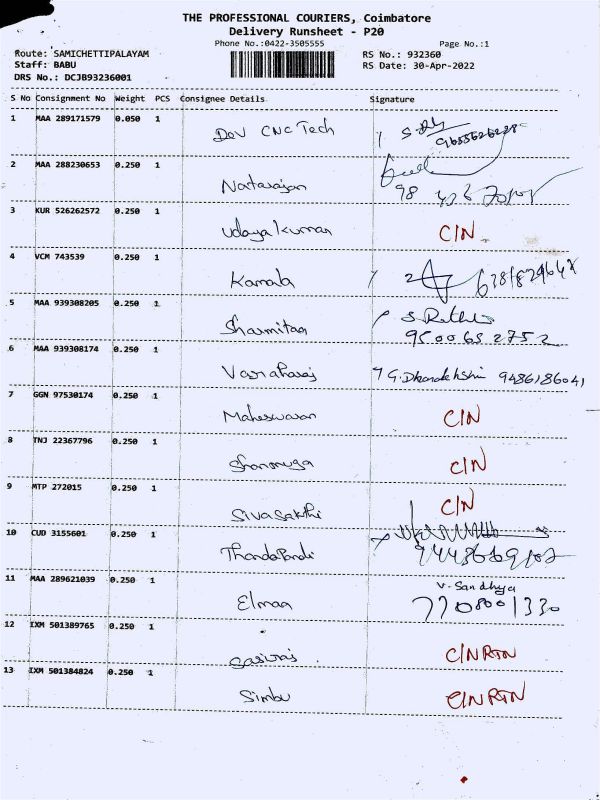 THE PROFESSIONAL COURIERS, Coimbatore
Delivery Runsheet - P20
Phone No.:0422-3505555 Page No.:1
Route: SAMICHETTIPALAYAM RS No.: 932360
Staff: BABU RS Date: 30-Apr-2022
DRS No.: DCJB93236001
S No Consignment No Weight PCS Consignee Details Signature
1 MAA 289171579 0.050 1 Dev CNC Tech
2 MAA 288230653 0.250 1 Natarajan
3 KUR 526262572 0.250 1 Udaya Kumar C/N
4 VCM 743539 0.250 1 Kamala
5 MAA 939308205 0.250 1 Sharmitaa
9500652752
6 MAA 939308174 0.250 1 G. 9486186041
7 GGN 97530174 0.250 1 Maheswaran C/N
8 TNJ 22367796 0.250 1 Shanmuga C/N
9 MTP 272015 0.250 1 Sivasakthi C/N
10 CUD 3155601 0.250 1 ThandaPandi
11 MAA 289621039 0.250 1 Elman V. Sandhya
7708001330
12 IXM 501389765 0.250 1 C/N RTN
13 IXM 501384824 0.250 1 Simbu C/N RTN